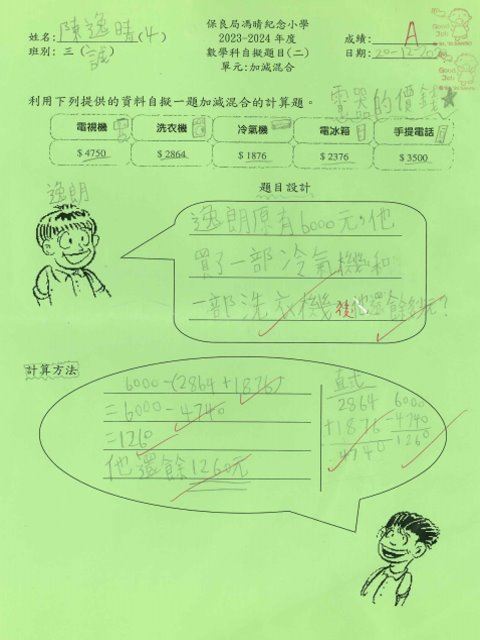 保良局馮晴紀念小學
2023-2024 年度
數學科自擬題目(二)
單元:加減混合
姓名: 陳逸晴(4)
班別: 三(誠)
成績: A
日期: 20-12-20
利用下列提供的資料自擬一題加減混合的計算題。
電器的價錢
電視機 洗衣機 冷氣機 電冰箱 手提電話
$ 4750 $ 2864 $ 1876 $ 2376 $ 3500
題目設計
逸朗
逸朗原有6000元,他
買了一部冷氣機和
一部洗衣機後他還餘多少元?
計算方法
6000-(2864+1876)
=6000-4740
=1260
他還餘1260元
直式
2864
+1876
4740
6000
-4740
1260